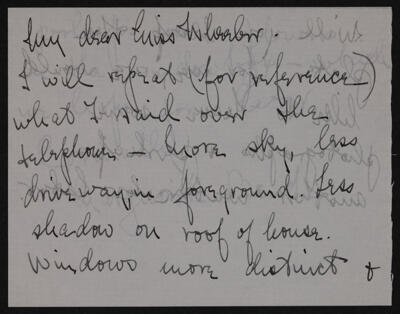 My dear Miss Wheeler.
I will repeat (for reference)
what I said over the
telephone – more sky, less
driveway in foreground. Less
shadow on roof of house.
Windows more distinct &